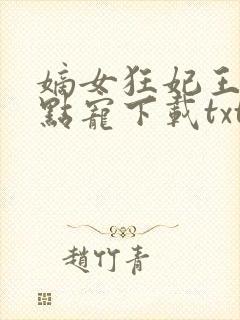 嫡女狂妃王
點寵下載txt
趙竹青